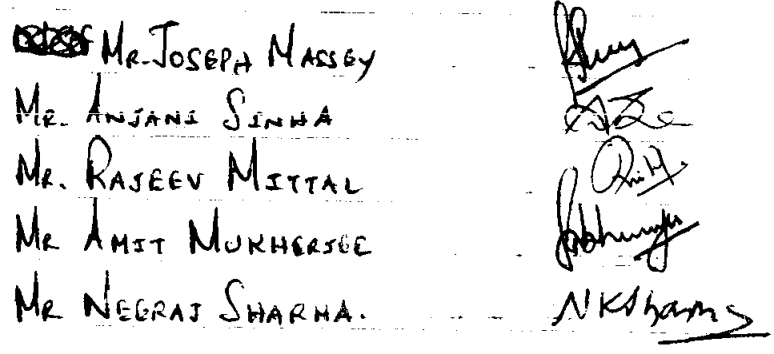 Mr. Joseph Massey
Mr. Anjani Sinha
Mr. Rajeev Mittal
Mr Amit Mukherjee
Mr Neeraj Sharma. NKSharma